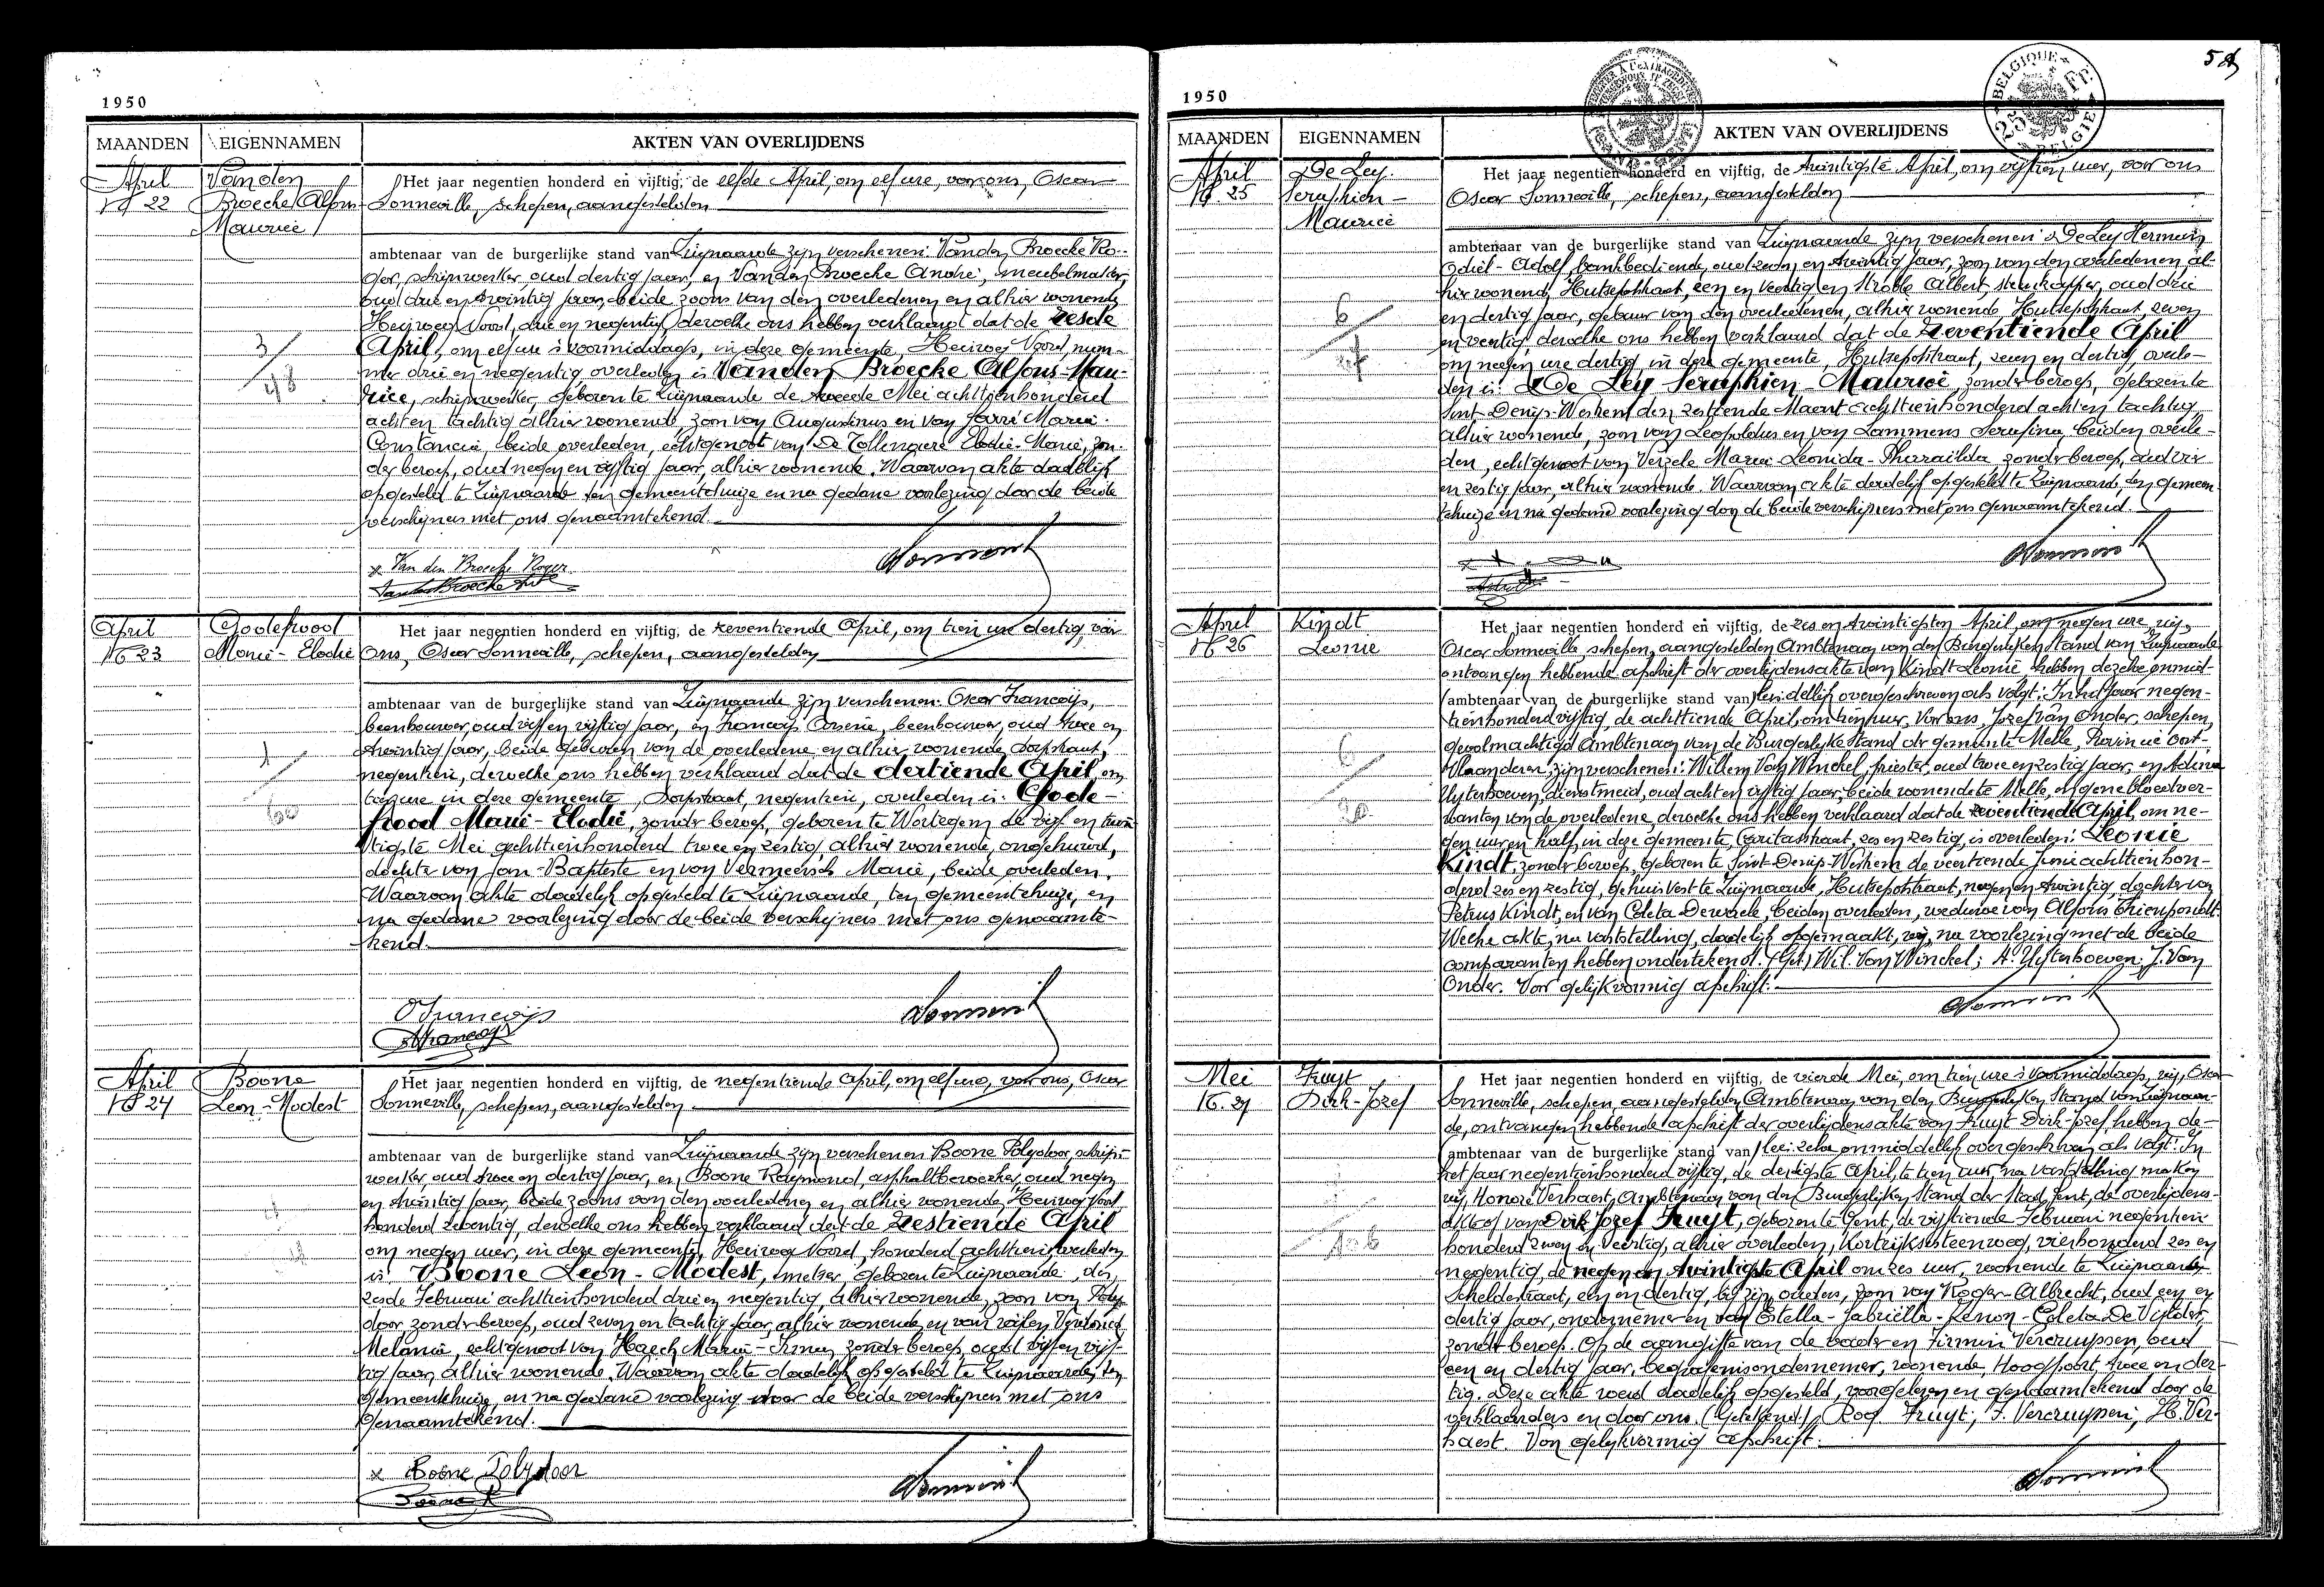 1950
MAANDEN EIGENNAMEN AKTEN VAN OVERLIJDENS
April
N° 22
Van den
Broecke Alfons
Maurice
Het jaar negentien honderd en vijftig, de elfde April, om elf ure, voor ons, Oscar
Sonneville, schepen, aangestelden
ambtenaar van de burgerlijke stand van Zwijnaarde zijn verschenen: Vanden Broecke Ro-
ger, schrijnwerker, oud dertig jaar, en Vanden Broecke André, meubelmaker,
oud drie en twintig jaar, beide zoons van den overledenen en alhier wonende
Heirweg Noord, drie en negentig, dewelke ons hebben verklaard dat de zesde
April, om elf ure 's voormiddags, in deze gemeente, Heirweg Noord, num-
mer drie en negentig overleden is Vanden Broecke Alfons-Mau-
rice, schrijnwerker, geboren te Zwijnaarde de tweede Mei achttienhonderd
acht en tachtig alhier wonende, zoon van Augustinus en van Marie-
Constancia, beide overleden, echtgenoot van De Tollenaere Elodie-Marie, zon-
der beroep, oud negen en vijftig jaar, alhier wonende. Waarvan akte dadelijk
opgesteld te Zwijnaarde ten gemeentehuize en na gedane voorlezing door de beide
verschijners met ons genaamtekend.
3/48
x Van den Broecke Roger
April
N° 23
Godefrood
Marie-Elodie
Het jaar negentien honderd en vijftig, de zeventiende April, om tien ure dertig, voor
ons, Oscar Sonneville, schepen, aangestelden
ambtenaar van de burgerlijke stand van Zwijnaarde zijn verschenen: Oscar Francois,
oud vijf en vijftig jaar, en Francois oud twee en
twintig jaar, beide geburen van de overledene en alhier wonende Dorpstraat,
negentien, dewelke ons hebben verklaard dat de dertiende April, om
ure in deze gemeente, Dorpstraat, negentien, overleden is: Gode-
frood Marie-Elodie, zonder beroep, geboren te Wortegem de vijf en twin-
tigste Mei achttienhonderd twee en zestig, alhier wonende, ongehuwd,
dochter van Jan-Baptiste en van Vermeersch Marie, beide overleden.
Waarvan akte dadelijk opgesteld te Zwijnaarde, ten gemeentehuize, en
na gedane voorlezing door de beide verschijners met ons genaamte-
kend.
1/60
O Francois
April
N° 24
Boone
Leon-Modest
Het jaar negentien honderd en vijftig, de negentiende April, om elf ure, voor ons, Oscar
Sonneville, schepen, aangestelden
ambtenaar van de burgerlijke stand van Zwijnaarde zijn verschenen Boone Polydoor, schrijn-
werker oud twee en dertig jaar, en Boone Raymond, asphaltbewerker, oud negen
en twintig jaar, beide zoons van den overledene en alhier wonende, Heirweg
honderd zeventig, dewelke ons hebben verklaard dat de zestiende April
om negen uur, in deze gemeente, Heirweg Noord, honderd achttien overleden
is: Boone Leon-Modest, metser, geboren te Zwijnaarde, den
zesde Februari achttienhonderd drie en negentig, alhier wonende, zoon van Poly-
door zonder beroep, oud zeven en tachtig jaar, alhier wonende, en van wijlen
Melanie, echtgenoot van Haeck Marie-Irma, zonder beroep, oud vijf en vijf-
tig jaar, alhier wonende. Waarvan akte dadelijk opgesteld te Zwijnaarde, ten
gemeentehuize, en na gedane voorlezing door de beide verschijners met ons
genaamtekend.
x Boone Polydoor
1950
MAANDEN EIGENNAMEN AKTEN VAN OVERLIJDENS
BELGIQUE 25 Fr. BELGIE
April
N° 25
De Ley
Seraphien-
Maurice
Het jaar negentien honderd en vijftig, de twintigste April, om vijftien uur, voor ons
Oscar Sonneville, schepen, aangestelden
ambtenaar van de burgerlijke stand van Zwijnaarde zijn verschenen: De Ley Herman
Odiel-Adolf, bankbediende, oud zeven en twintig jaar, zoon van den overledenen al-
hier wonend, Hutsepotstraat, een en veertig en Strobbe Albert, oud drie
en dertig jaar, gebuur van den overledenen, alhier wonende, Hutsepotstraat, zeven
en veertig, dewelke ons hebben verklaard dat de zeventiende April
om negen ure dertig, in deze gemeente, Hutsepotstraat, zeven en dertig, overle-
den is: De Ley Seraphien-Maurice, zonder beroep, geboren te
Sint-Denijs-Westrem den zestiende Maart achttienhonderd acht en tachtig
alhier wonende, zoon van Leopoldus en van Lammens Serafina, beiden overle-
den, echtgenoot van Verzele Maria Leonida- zonder beroep, oud vier
en zestig jaar, alhier wonende. Waarvan akte dadelijk opgesteld te Zwijnaarde, ten gemeen-
tehuize en na gedane voorlezing door de beide verschijners met ons genaamtekend.
April
N° 26
Kindt
Leonie
Het jaar negentien honderd en vijftig, de zes en twintigsten April, om negen ure wij,
Oscar Sonneville, schepen, aangestelden Ambtenaar van den Burgerlijken Stand van Zwijnaarde
ontvangen hebbende afschrift der overlijdensakte van Kindt Leonie, hebben dezelve onmid-
ambtenaar van de burgerlijke stand van dellijk overgeschreven als volgt: In het jaar negen-
tienhonderd vijftig, de achttiende April, om tien uur, Voor ons, Jozef Van Onder, schepen,
gevolmachtigd Ambtenaar van de Burgerlijke Stand der gemeente Melle, Provincie Oost-
Vlaanderen, zijn verschenen: Willem Van Winckel, priester, oud twee en zestig jaar, en Adina
Uyterhoeven, dienstmeid, oud acht en vijftig jaar, beide wonende te Melle, en gene bloedver-
wanten van de overledene, dewelke ons hebben verklaard dat de zeventiende April, om ne-
gen uur en half, in deze gemeente, Caritasstraat, zes en zestig, is overleden: Leonie
Kindt, zonder beroep, geboren te Sint-Denijs-Westrem de veertiende Juni achttienhon-
derd zes en zestig, gehuisvest te Zwijnaarde, Hutsepotstraat, negen en twintig, dochter van
Petrus Kindt, en van Coleta Dewaele, beiden overleden, weduwe van Alfons Thienpondt.
Welke akte, na vaststelling, dadelijk opgemaakt, wij, na voorlezing met de beide
comparanten hebben ondertekend. (Get.) Wil. Van Winckel; A. Uyterhoeven; J. Van
Onder. Voor gelijkvormig afschrift:
Mei
N° 27
Fruyt
Dirk-Jozef
Het jaar negentien honderd en vijftig, de vierde Mei, om tien ure 's voormiddags, wij, Oscar
Sonneville, schepen, aangestelden Ambtenaar van den Burgerlijken Stand van Zwijnaar-
de, ontvangen hebbende afschrift der overlijdensakte van Fruyt Dirk-Jozef hebben de-
ambtenaar van de burgerlijke stand van zelve onmiddellijk overgeschreven als volgt: In
het jaar negentienhonderd vijftig, de dertigste April, te tien uur, na vaststelling maken
wij, Honoré Verhaest, Ambtenaar van den Burgerlijken Stand der Stad Gent, de overlijdens-
akte op van Dirk Jozef Fruyt, geboren te Gent, de vijftiende Februari negentien-
honderd zeven en veertig, alhier overleden, Kortrijksesteenweg, vierhonderd zes en
negentig, de negen en twintigste April om zes uur, wonende te Zwijnaarde
Scheldestraat, een en dertig, bij zijn ouders, zoon van Roger-Albrecht, oud een en
dertig jaar, ondernemer en van Estella-Gabriëlla-Renon-Coleta De Vijlder,
zonder beroep. Op de aangifte van de vader en Firmin Vercruyssen, oud
een en dertig jaar, begrafenisondernemer, wonende, Hoogpoort, twee en der-
tig. Deze akte werd dadelijk opgesteld, voorgelezen en genaamtekend door de
verklaarders en door ons. (Getekend.) Rog. Fruyt; F. Vercruyssen; H. Ver-
haest. Voor gelijkvormig afschrift.